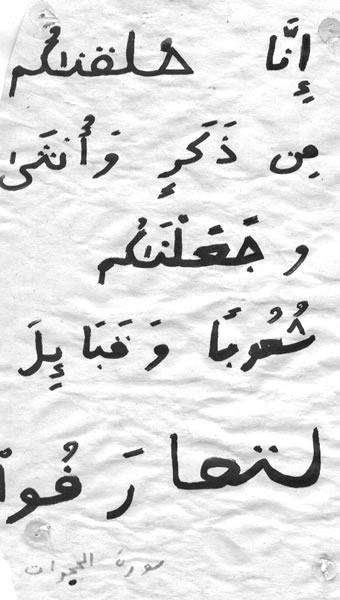 إِنَّا خلقناكم
مِن ذَكَرٍ وَأُنثَىٰ
و جَعَلْنَاكُم
شُعُوبًا وَقَبَائِلَ
لتعارَفُوا
سورة الحجرات